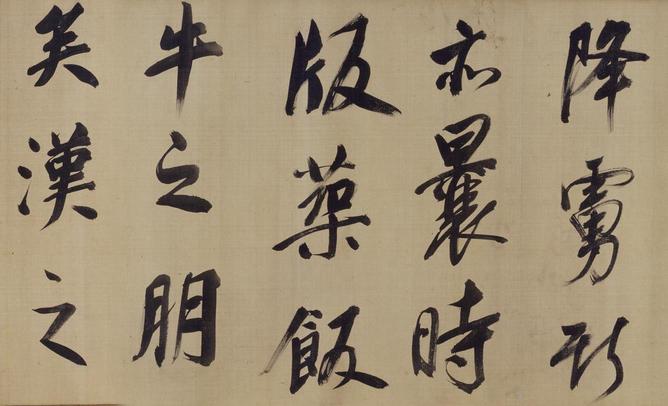 降虜斯
亦曩時
版築飯
牛之朋
矣漢之